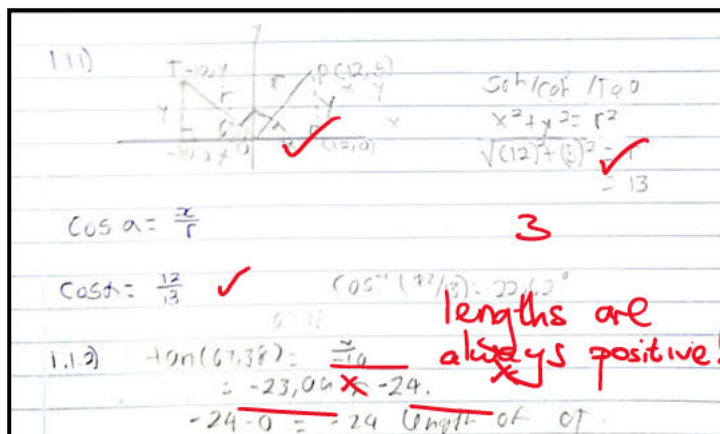 1.1.1)
P(12,5)
r r
y y
(12,0)
Soh/Cah/Toa
x²+y²= r²
√(12)²+(5)² = r
= 13
Cos α = x/r
3
Cosα = 12/13 cos⁻¹(12/13) = 22,62°
lengths are
always positive!
1.1.2) tan(67,38) = y/-10
= -23,99 ≈ -24.
-24-0 = -24 length of OT